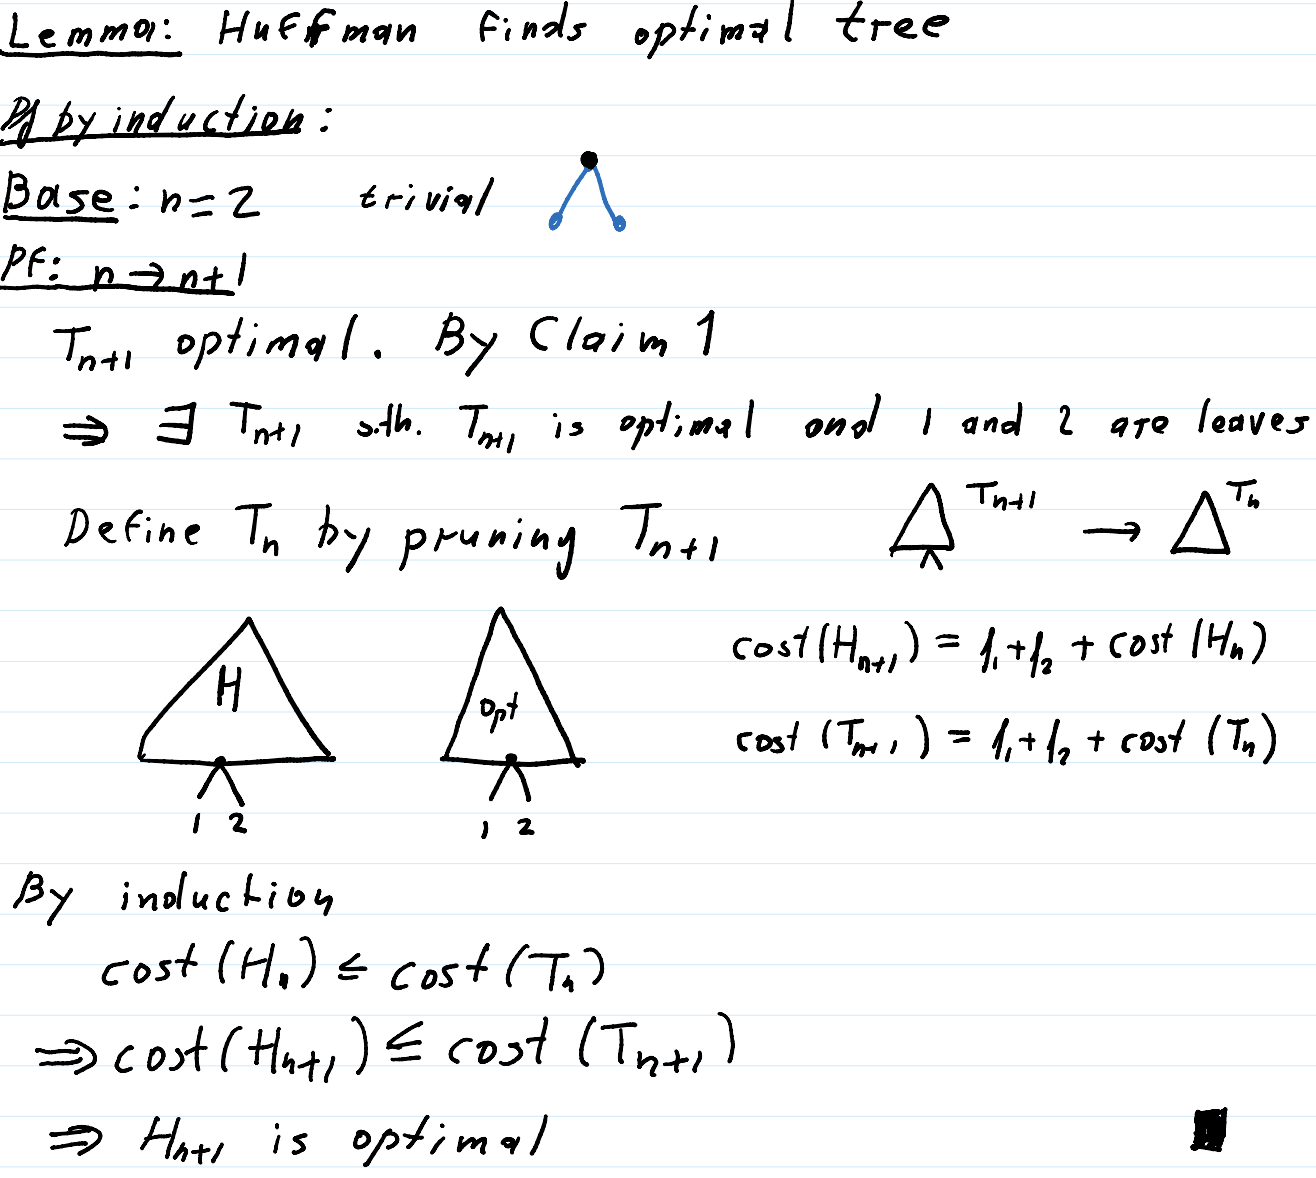 Lemma: Huffman finds optimal tree
Pf by induction:
Base: n=2 trivial
Pf: n→n+1
Tₙ₊₁ optimal. By Claim 1
⇒ ∃ Tₙ₊₁ s.th. Tₙ₊₁ is optimal and 1 and 2 are leaves
Define Tₙ by pruning Tₙ₊₁ Tₙ₊₁ → Tₙ
H opt cost(Hₙ₊₁) = f₁+f₂ + cost(Hₙ)
cost(Tₙ₊₁) = f₁+f₂ + cost(Tₙ)
1 2 1 2
By induction
cost(Hₙ) ≤ cost(Tₙ)
⇒ cost(Hₙ₊₁) ≤ cost(Tₙ₊₁)
⇒ Hₙ₊₁ is optimal